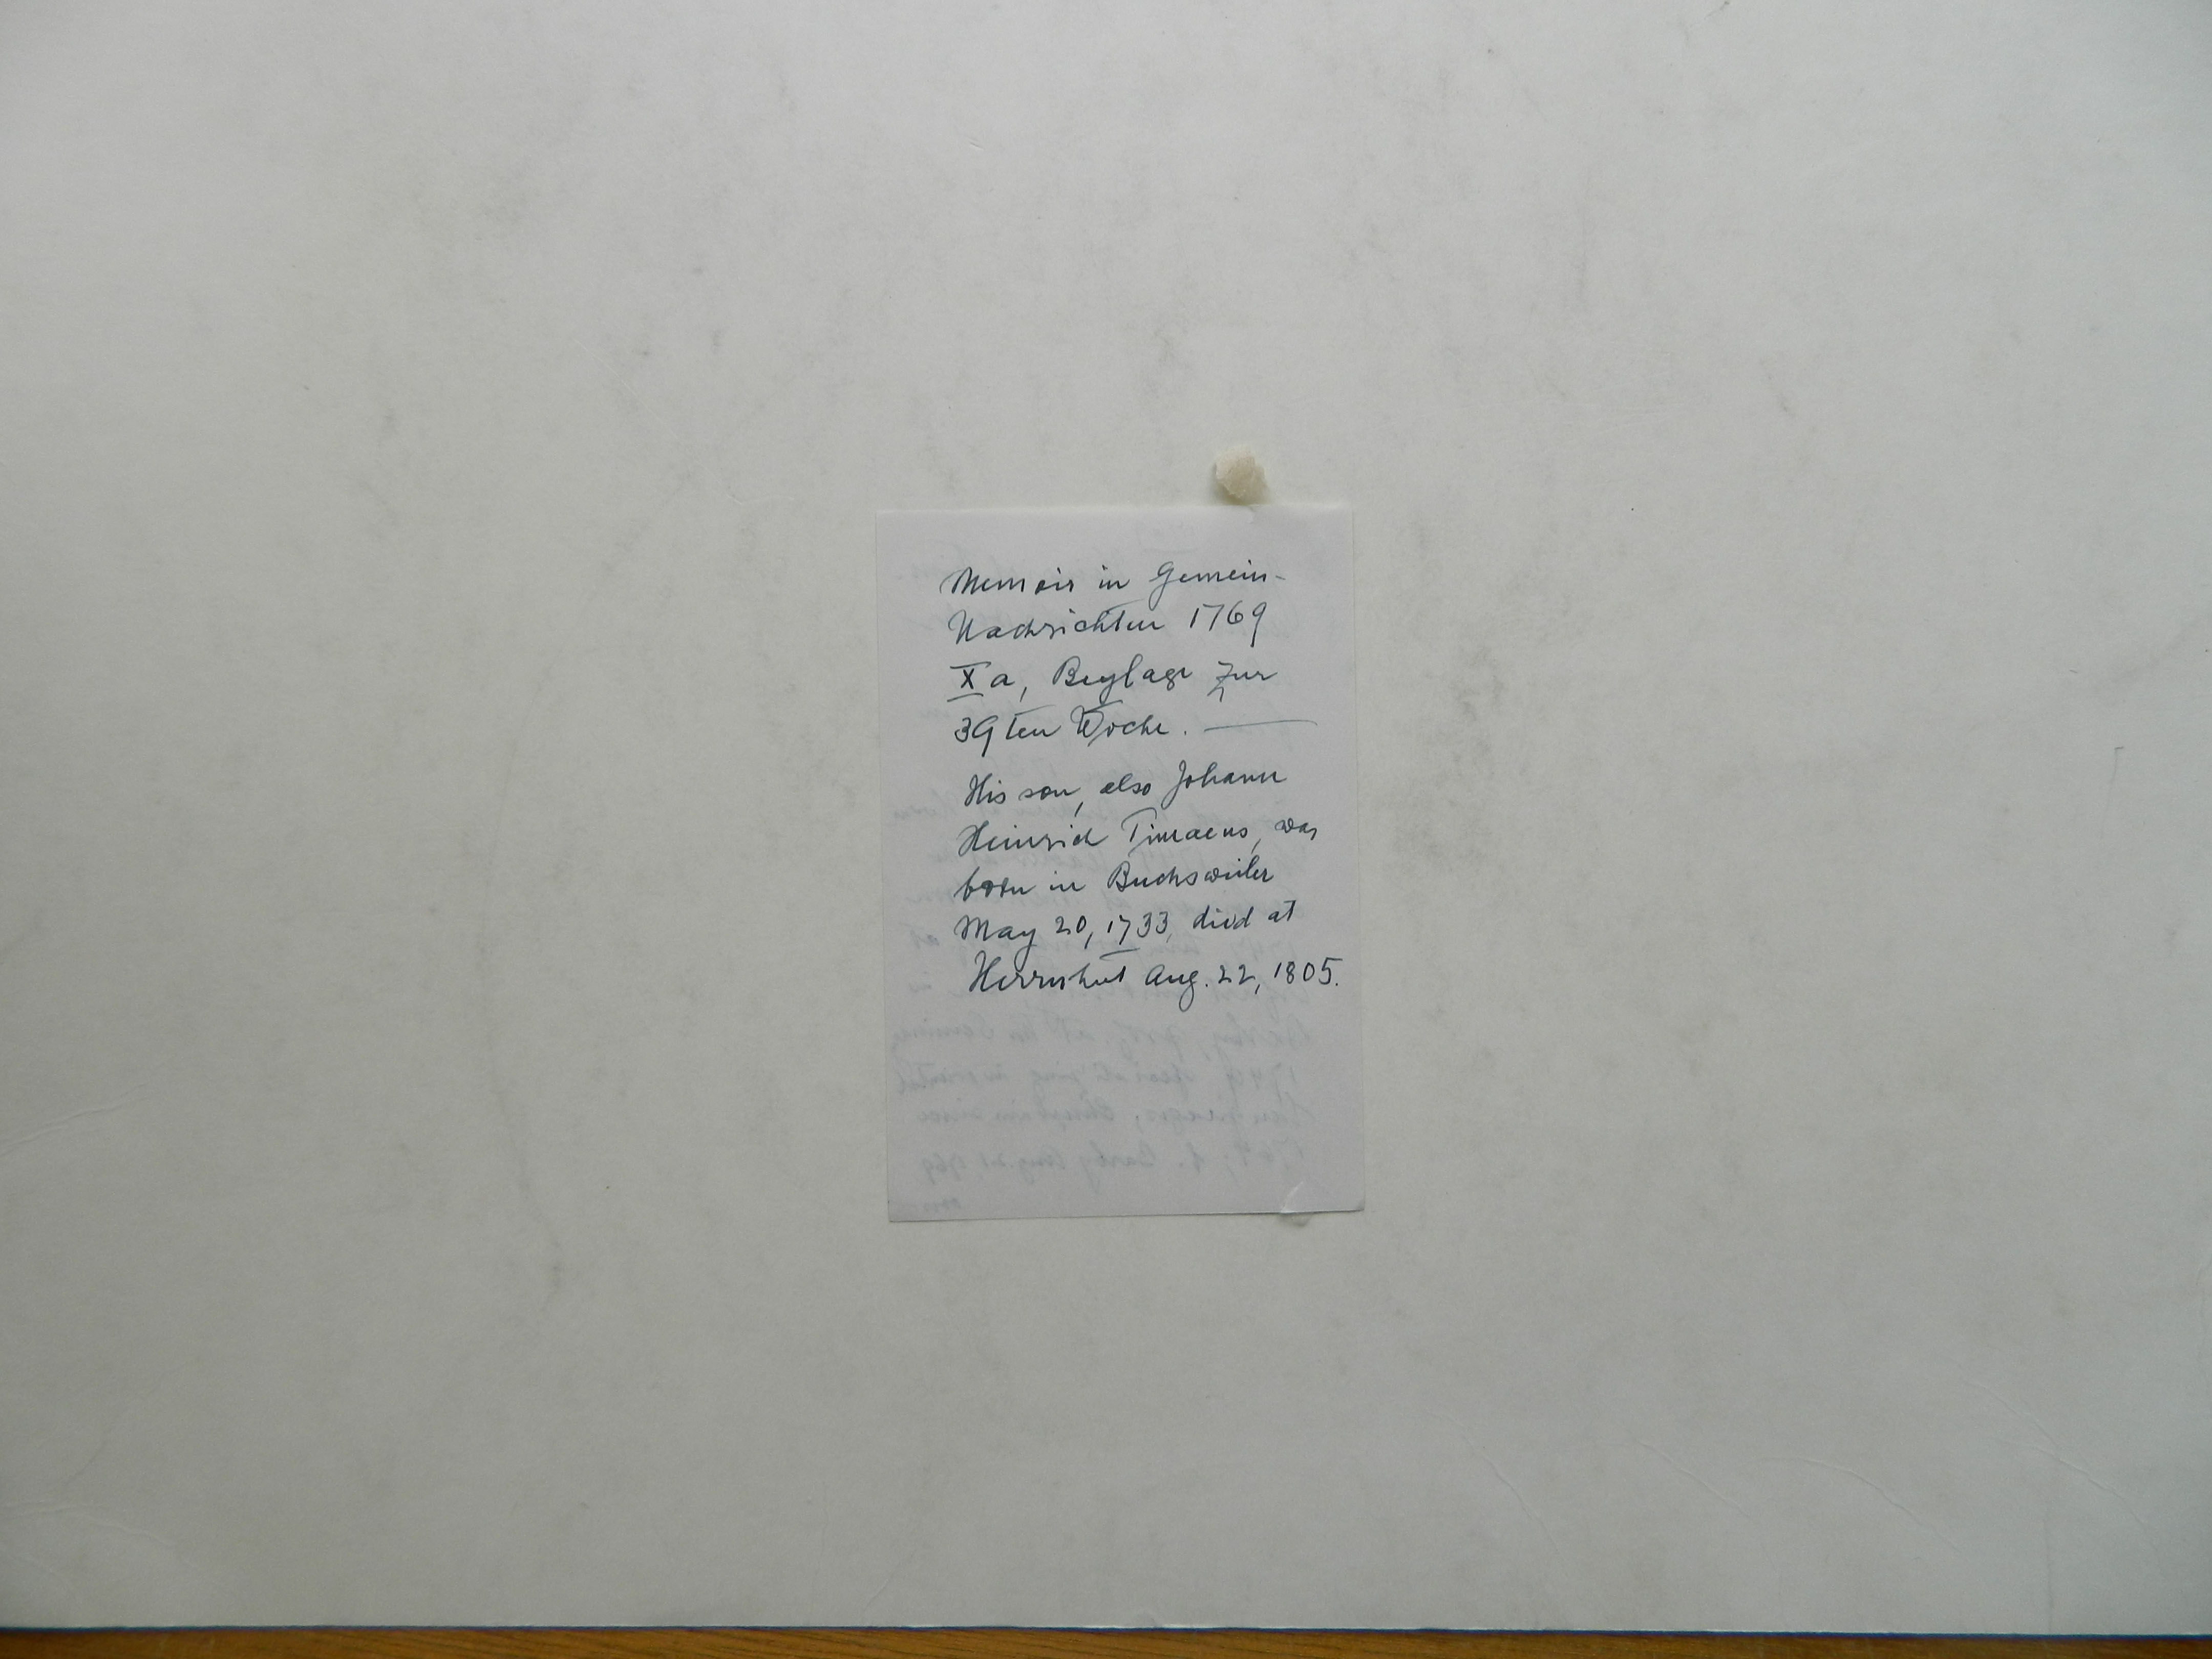 Memoir in Gemein-
Nachrichten 1769
X a, Beylage zur
39ten Woche. —
His son, also Johann
Heinrich Timaeus, was
born in Buchsweiler
May 20, 1733, died at
Herrnhut Aug. 22, 1805.